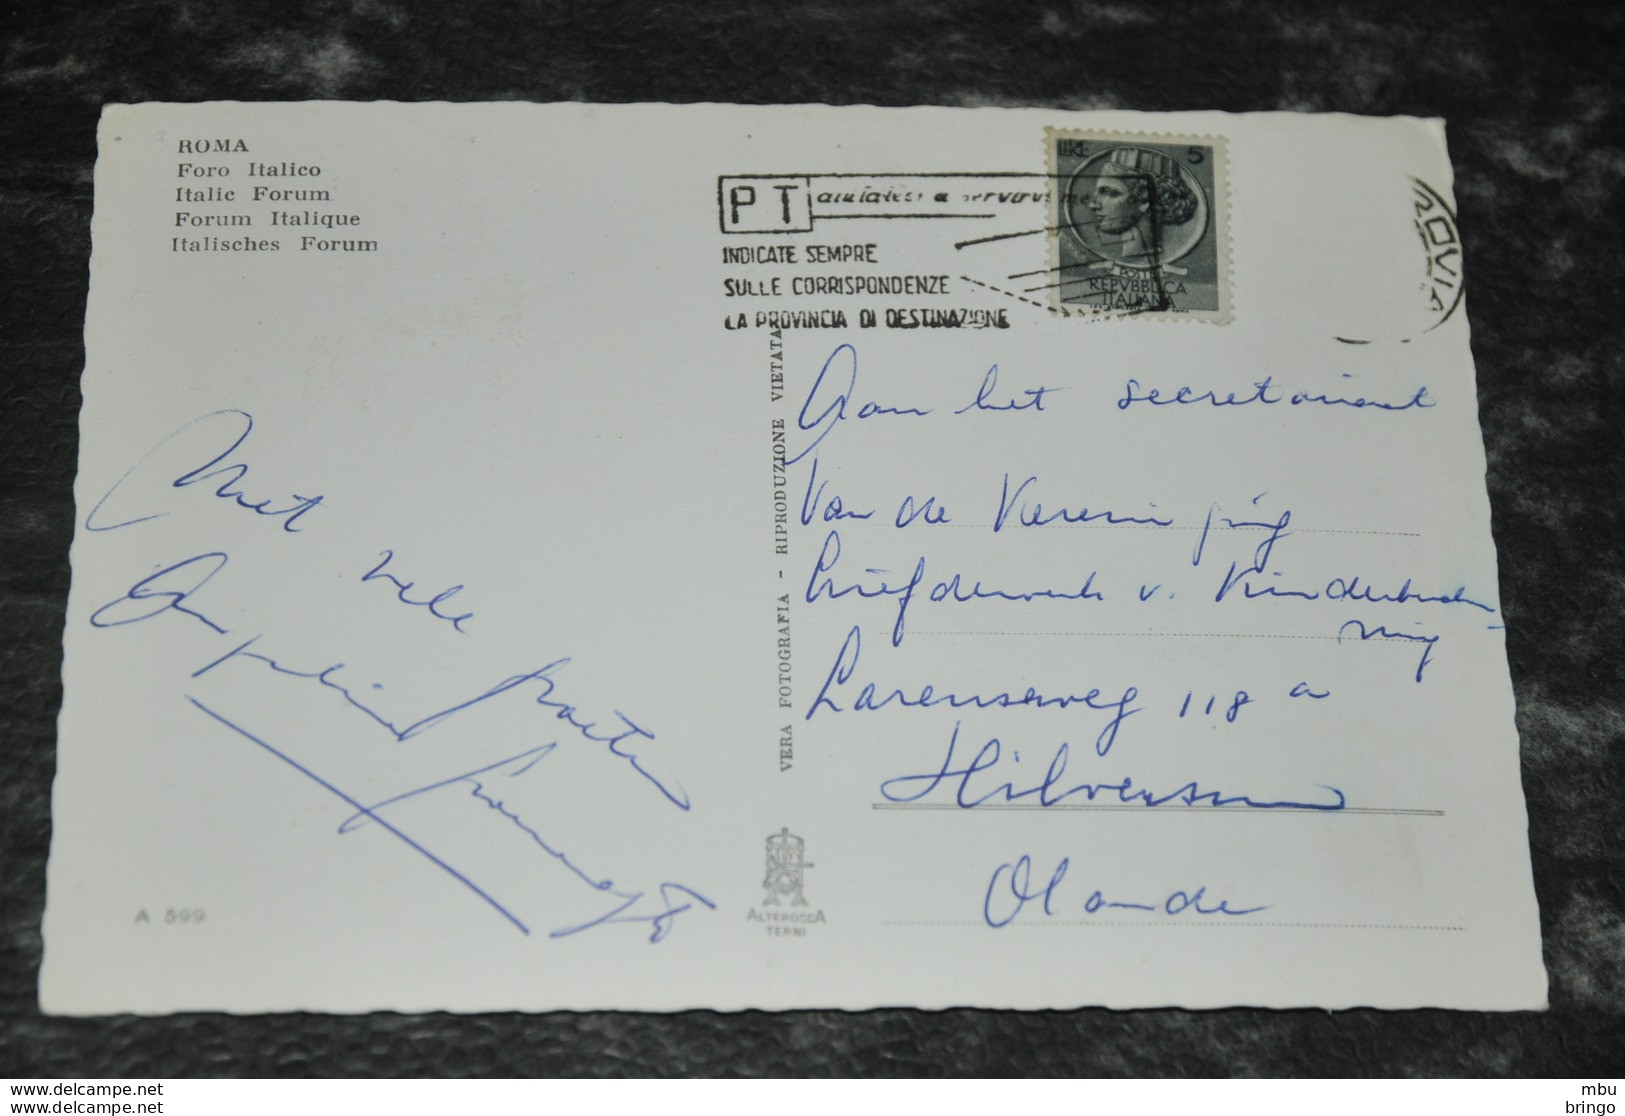 ROMA
Foro Italico
Italic Forum
Forum Italique
Italisches Forum
PT aiutateci a servirvi me
INDICATE SEMPRE
SULLE CORRISPONDENZE
LA PROVINCIA DI DESTINAZIONE
LIRE 5
POSTE
REPVBBLICA
ITALIANA
ROVIA
VERA FOTOGRAFIA - RIPRODUZIONE VIETATA
Met vele
groeten
Aan het secretariaat
Van de Vereeniging
Liefdewerk v.
118 a
Hilversum
Olanda
A 599
ALTEROCCA
TERNI
www.delcampe.net
www.delcampe.net
mbu
bringo